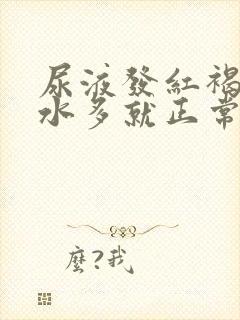 尿液發紅褐
水多就正常
麼?我